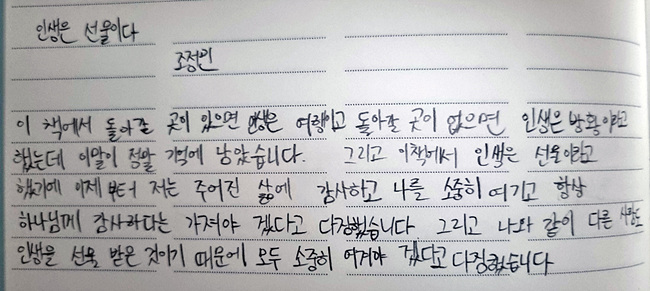 인생은 선물이다
조정민
이 책에서 돌아갈 곳이 있으면 인생은 여행이고 돌아갈 곳이 없으면 인생은 방황이라고
했는데 이말이 정말 기억에 남았습니다. 그리고 이책에서 인생은 선물이라고
했기에 이제부터 저는 주어진 삶에 감사하고 나를 소중히 여기고 항상
하나님께 감사하다는 가져야 겠다고 다짐했습니다 그리고 나와 같이 다른 사람도
인생을 선물 받은 것이기 때문에 모두 소중히 여겨야 겠다고 다짐했습니다